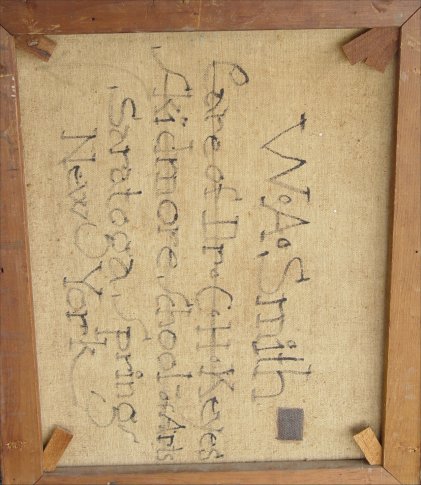 W.A. Smith
Care of Dr. C.H. Keyes
Skidmore School of Arts
Saratoga Springs
New York